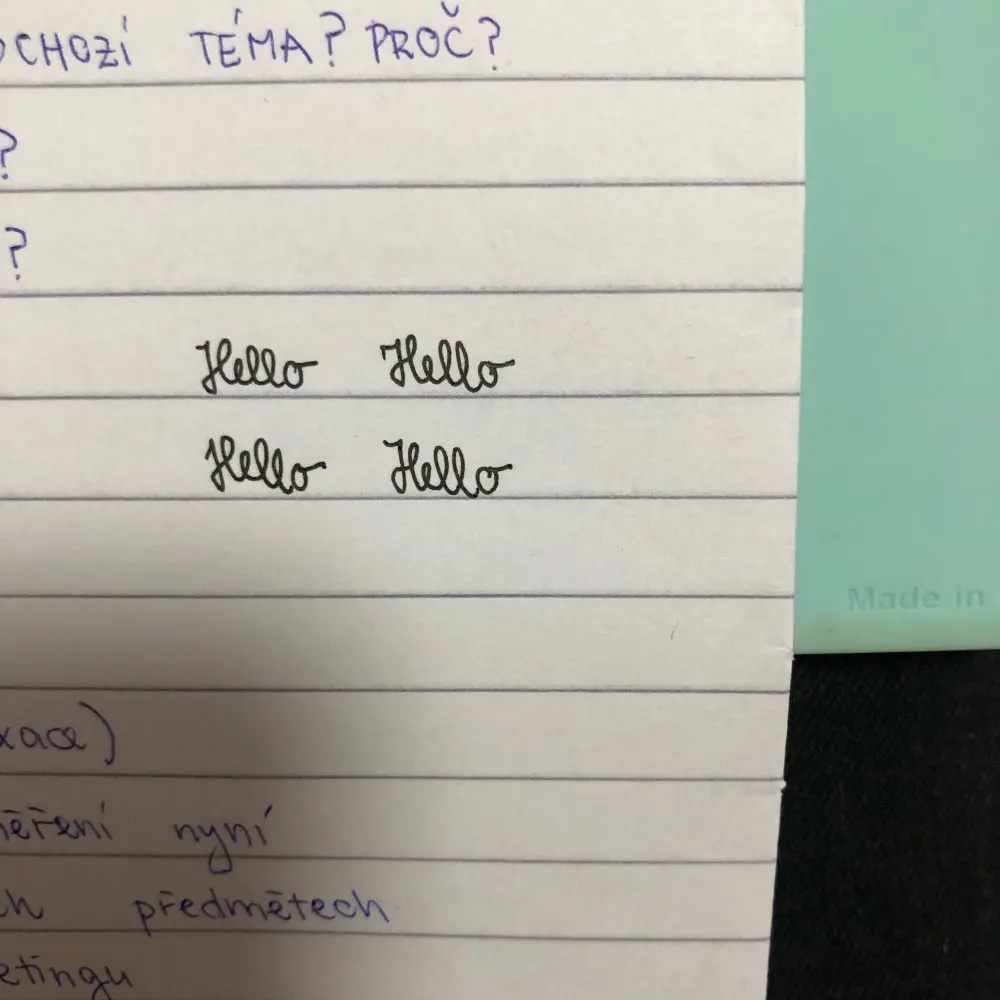 OCHOZÍ TÉMA? PROČ?
?
?
Hello Hello
Hello Hello
xace)
ěření nyní
ch předmětech
etingu
Made in